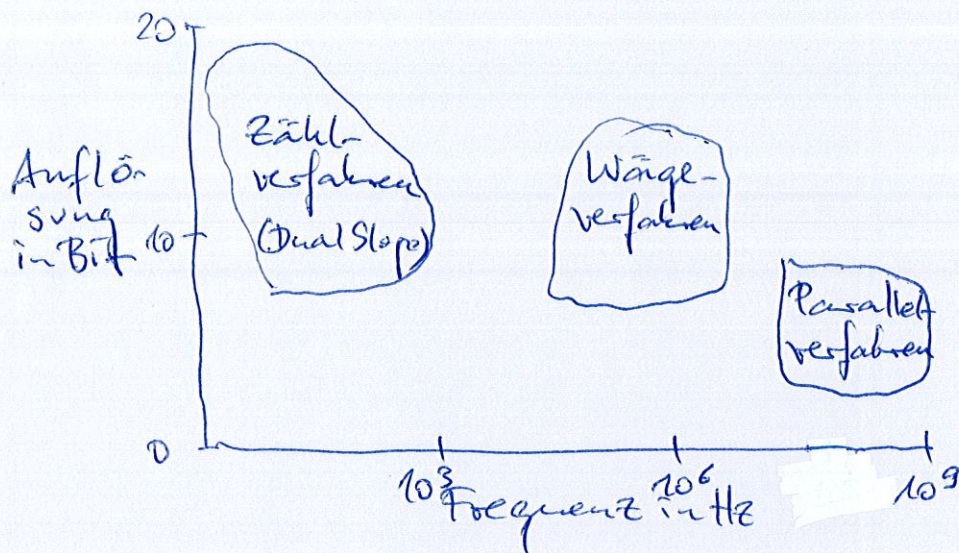 20
Auflö-
sung
in Bit
10
0
Zähl-
verfahren
(Dual Slope)
Wäge-
verfahren
Parallel-
verfahren
10³
10⁶
10⁹
Frequenz in Hz